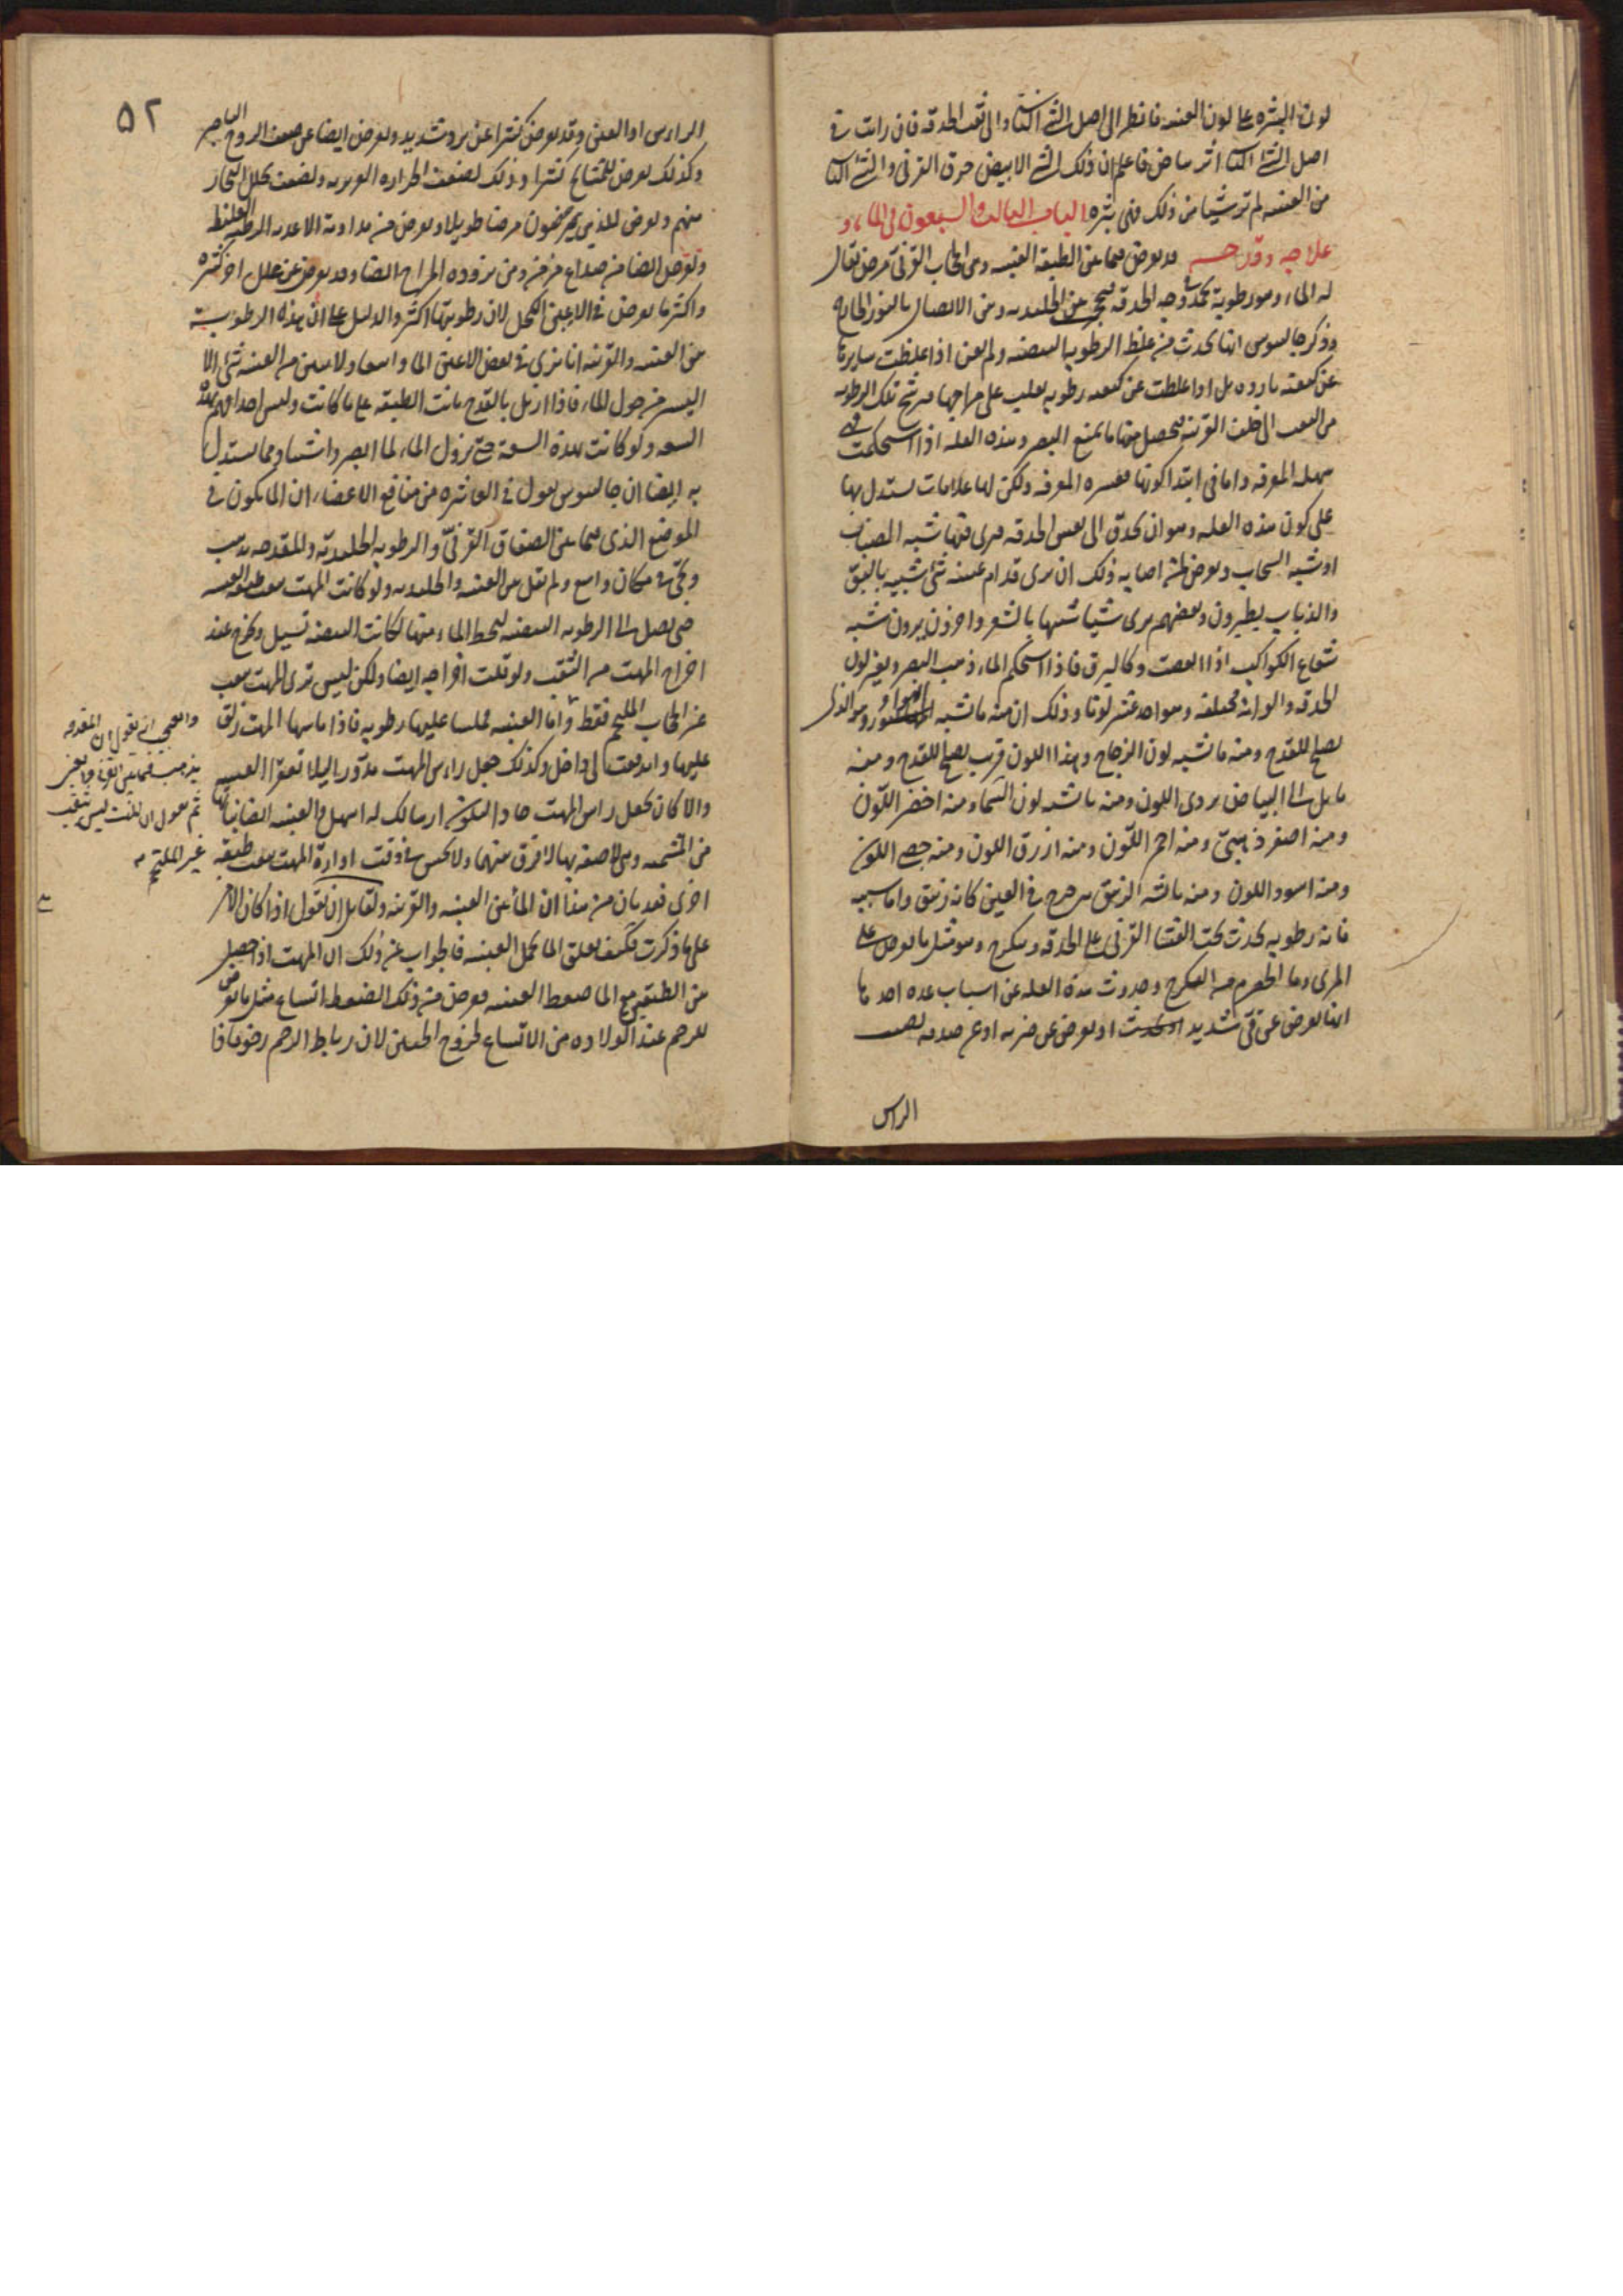 لون البثره على لون العنبيه فانظر الى اصل الشئ الناتئ والى ثقب الحدقه فان رايت في
اصل الشئ الناتئ اثر بياض فاعلم ان ذلك الشئ الابيض حرق القرني والشئ الناتئ
من العنبيه لم تر شيا من ذلك فهى بثره الباب الثالث والسبعون فى الماء و
علاجه وقدحه قد يعرض فيما بين الطبقه العنبيه وبين الحجاب القرنى مرض يقال
له الماء وهو رطوبة تجمد فى وجه الحدقه فيحجز بين الجليديه وبين الاتصال بالنور الخارج
وذكر جالينوس انها تحدث من غلظ الرطوبه البيضيه ولم يعن اذا غلظت سايرها
عن كيفيه بارده بل اذا غلظت عن كيفيه رطوبه يغلب على مزاجها فيرشح تلك الرطوبه
من الثقب الى خلف القرنيه فيحصل منها ما يمنع البصر وهذه العله اذا استحكمت فهى
سهله المعرفه واما فى ابتدا كونها فعسره المعرفه ولكن لها علامات يستدل بها
على كون هذه العله وهو ان تحدق الى نفس الحدقه فترى فيها شبه الضباب
او شبه السحاب ويعرض لمن اصابه ذلك ان يرى قدام عينيه شئ شبيه بالبق
والذباب يطيرون وبعضهم يرى شيا شبيها بالشعر واخرون يرون شبه
شعاع الكواكب اذا انقضت وكالبرق فاذا استحكم الماء ذهب البصر ويغير لون
الحدقه والوانه مختلفه وهو احد عشر لونا وذلك ان منه ما يشبه الهواء وهو الذى
يصلح للقدح ومنه ما يشبه لون الزجاج وهذا اللون قريب يصلح للقدح ومنه
مايل الى البياض بردى اللون ومنه ما يشبه لون السماء ومنه اخضر اللون
ومنه اصفر ذهبى ومنه احمر اللون ومنه ازرق اللون ومنه جصى اللون
ومنه اسود اللون ومنه ما يشبه الزيبق يترجرج فى العين كانه زيبق واما سببه
فانه رطوبه تحدث تحت الغشا القرنى على الحدقه ويتكرج وهو مثل ما يعرض على
المرى وما الحصرم من التكرج وحدوث هذه العله عن اسباب عده احدها
انها تعرض عن قئ شديد او يعرض عن ضربه او عن صدمه تصيب
الراس
٥٢
الراس او العين وقد يعرض كثيرا عن برد شديد ويعرض ايضا عن ضعف الروح الباصر
وكذلك يعرض للمشايخ كثيرا وذلك لضعف الحراره الغريزيه ولضعف تحلل البخار
منهم ويعرض للذين يمرضون مرضا طويلا ويعرض من مداومة الاغذيه المرطبه الغليظ
ويعرض ايضا من صداع مزمن ومن بروده المزاج ايضا وقد يعرض عن علل اخر كثيره
واكثر ما يعرض فى الاعين الكحل لان رطوبتها اكثر والدليل على ان هذه الرطوبة
بين العنبيه والقرنيه انا نرى فى بعض الاعين الماء واسعا ولا يبين من العنبيه شئ الا
اليسير من حول الماء فاذا انزل بالقدح بانت الطبقه على ما كانت وليس احد انهم بهذه
السعه ولو كانت بهذه السعة حتى نزول الماء لما ابصر وانتشا ومما يستدل
به ايضا ان جالينوس يقول فى العاشره من منافع الاعضاء ان الماء يكون فى
الموضع الذى فيما بين الصفاق القرنى والرطوبه الجليديه والمقدحه يذهب
ويجئ فى مكان واسع ولم يقل بين العنبيه والجليديه ولو كانت المهت يثقب العنبيه
حتى يصل الى الرطوبه البيضيه ليحط الماء منها لكانت البيضيه تسيل وتخرج عند
اخراج المهت من الثقب ولو قلت اخراجه ايضا ولكن ليس ترى المهت يثقب
غير الحجاب الملتحم فقط واما العنبيه فملسا عليها رطوبه فاذا ماسها المهت زلق
عليها واندفعت الى داخل وكذلك جعل راس المهت مدورا ليلا تعقر العنبيه
والا كان يجعل راس المهت حادا ليكون ارسالك له اسهل والعنبيه ايضا نباتها
من المشيميه وهى لاصقه بها لا فرق بينهما ولا تحس فى وقت ادارة المهت يثقب طبقه
اخرى فقد بان من هذا ان الماء بين العنبيه والقرنيه ولقايل ان يقول اذا كان الامر
على ما ذكرت فكيف يتعلق الماء بخمل العنبيه فالجواب عن ذلك ان المهت اذا حصل
بين الطبقتين مع الماء ضغط العنبيه فيعرض من ذلك الضغط اتساع مثل ما يعرض
للرحم عند الولاده من الاتساع لخروج الجنين لان رباط الرحم رخو فاذا
والعجب انه يقول ان المقدحه
يذهب فيما بين القرنى والعنبى
ثم يقول ان المهت ليس يثقب
غير الملتحم